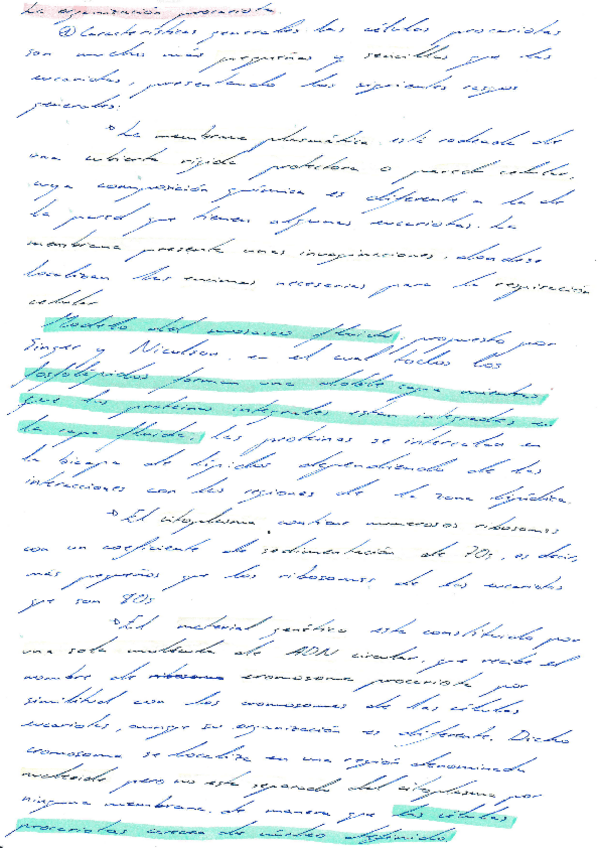 La organización procariota.
@ Características generales: las células procariotas
son mucho más pequeñas y sencillas que las
eucariotas, presentando los siguientes rasgos
generales:
° La membrana plasmática está rodeada de
una cubierta rígida protectora o pared celular,
cuya composición química es diferente a la de
la pared que tienen algunas eucariotas. La
membrana presenta unas invaginaciones, donde se
localizan las enzimas necesarias para la respiración
celular
Modelo del mosaico fluido, propuesto por
Singer y Nicolson, en el cual todos los
fosfolípidos forman una doble capa mientras
que las proteínas integrales están integradas en
la capa fluida. Las proteínas se intercalan en
la bicapa de lípidos dependiendo de las
interacciones con las regiones de la zona lipídica.
° El citoplasma contiene numerosos ribosomas
con un coeficiente de sedimentación de 70s, es decir,
más pequeños que los ribosomas de las eucariotas
que son 80s
° El material genético esta constituido por
una sola molécula de ADN circular, que recibe el
nombre de cromosoma procariota por
similitud con los cromosomas de las células
eucariotas, aunque su organización es diferente. Dicho
cromosoma se localiza en una región denominada
nucleoide pero no esta separada del citoplasma por
ninguna membrana, de manera que las células
procariotas carecen de núcleo definido.